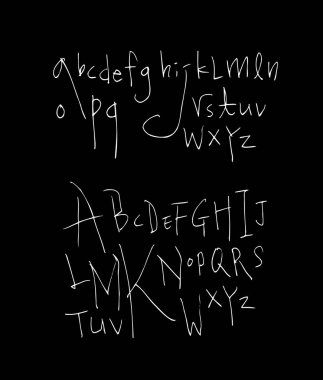 abcdefghijkLmln
opqrstuv
wxyz
ABCDEFGHIJ
LMKNOPQRS
TUVWXYZ